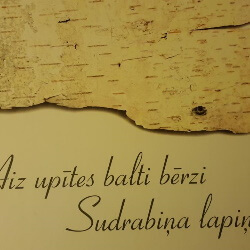 Aiz upītes balti bērzi
Sudrabiņa lapiņ